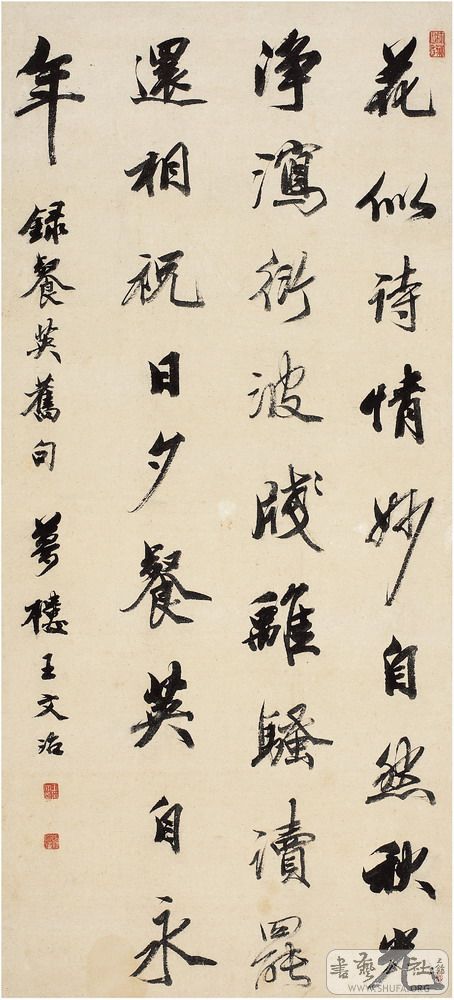 花似詩情妙自然秋光
淨瀉衍波牋離騷讀罷
還相祝日夕餐英自永
年 錄餐英舊句 夢樓王文治
書藝公社
WWW.SHUFA.ORG